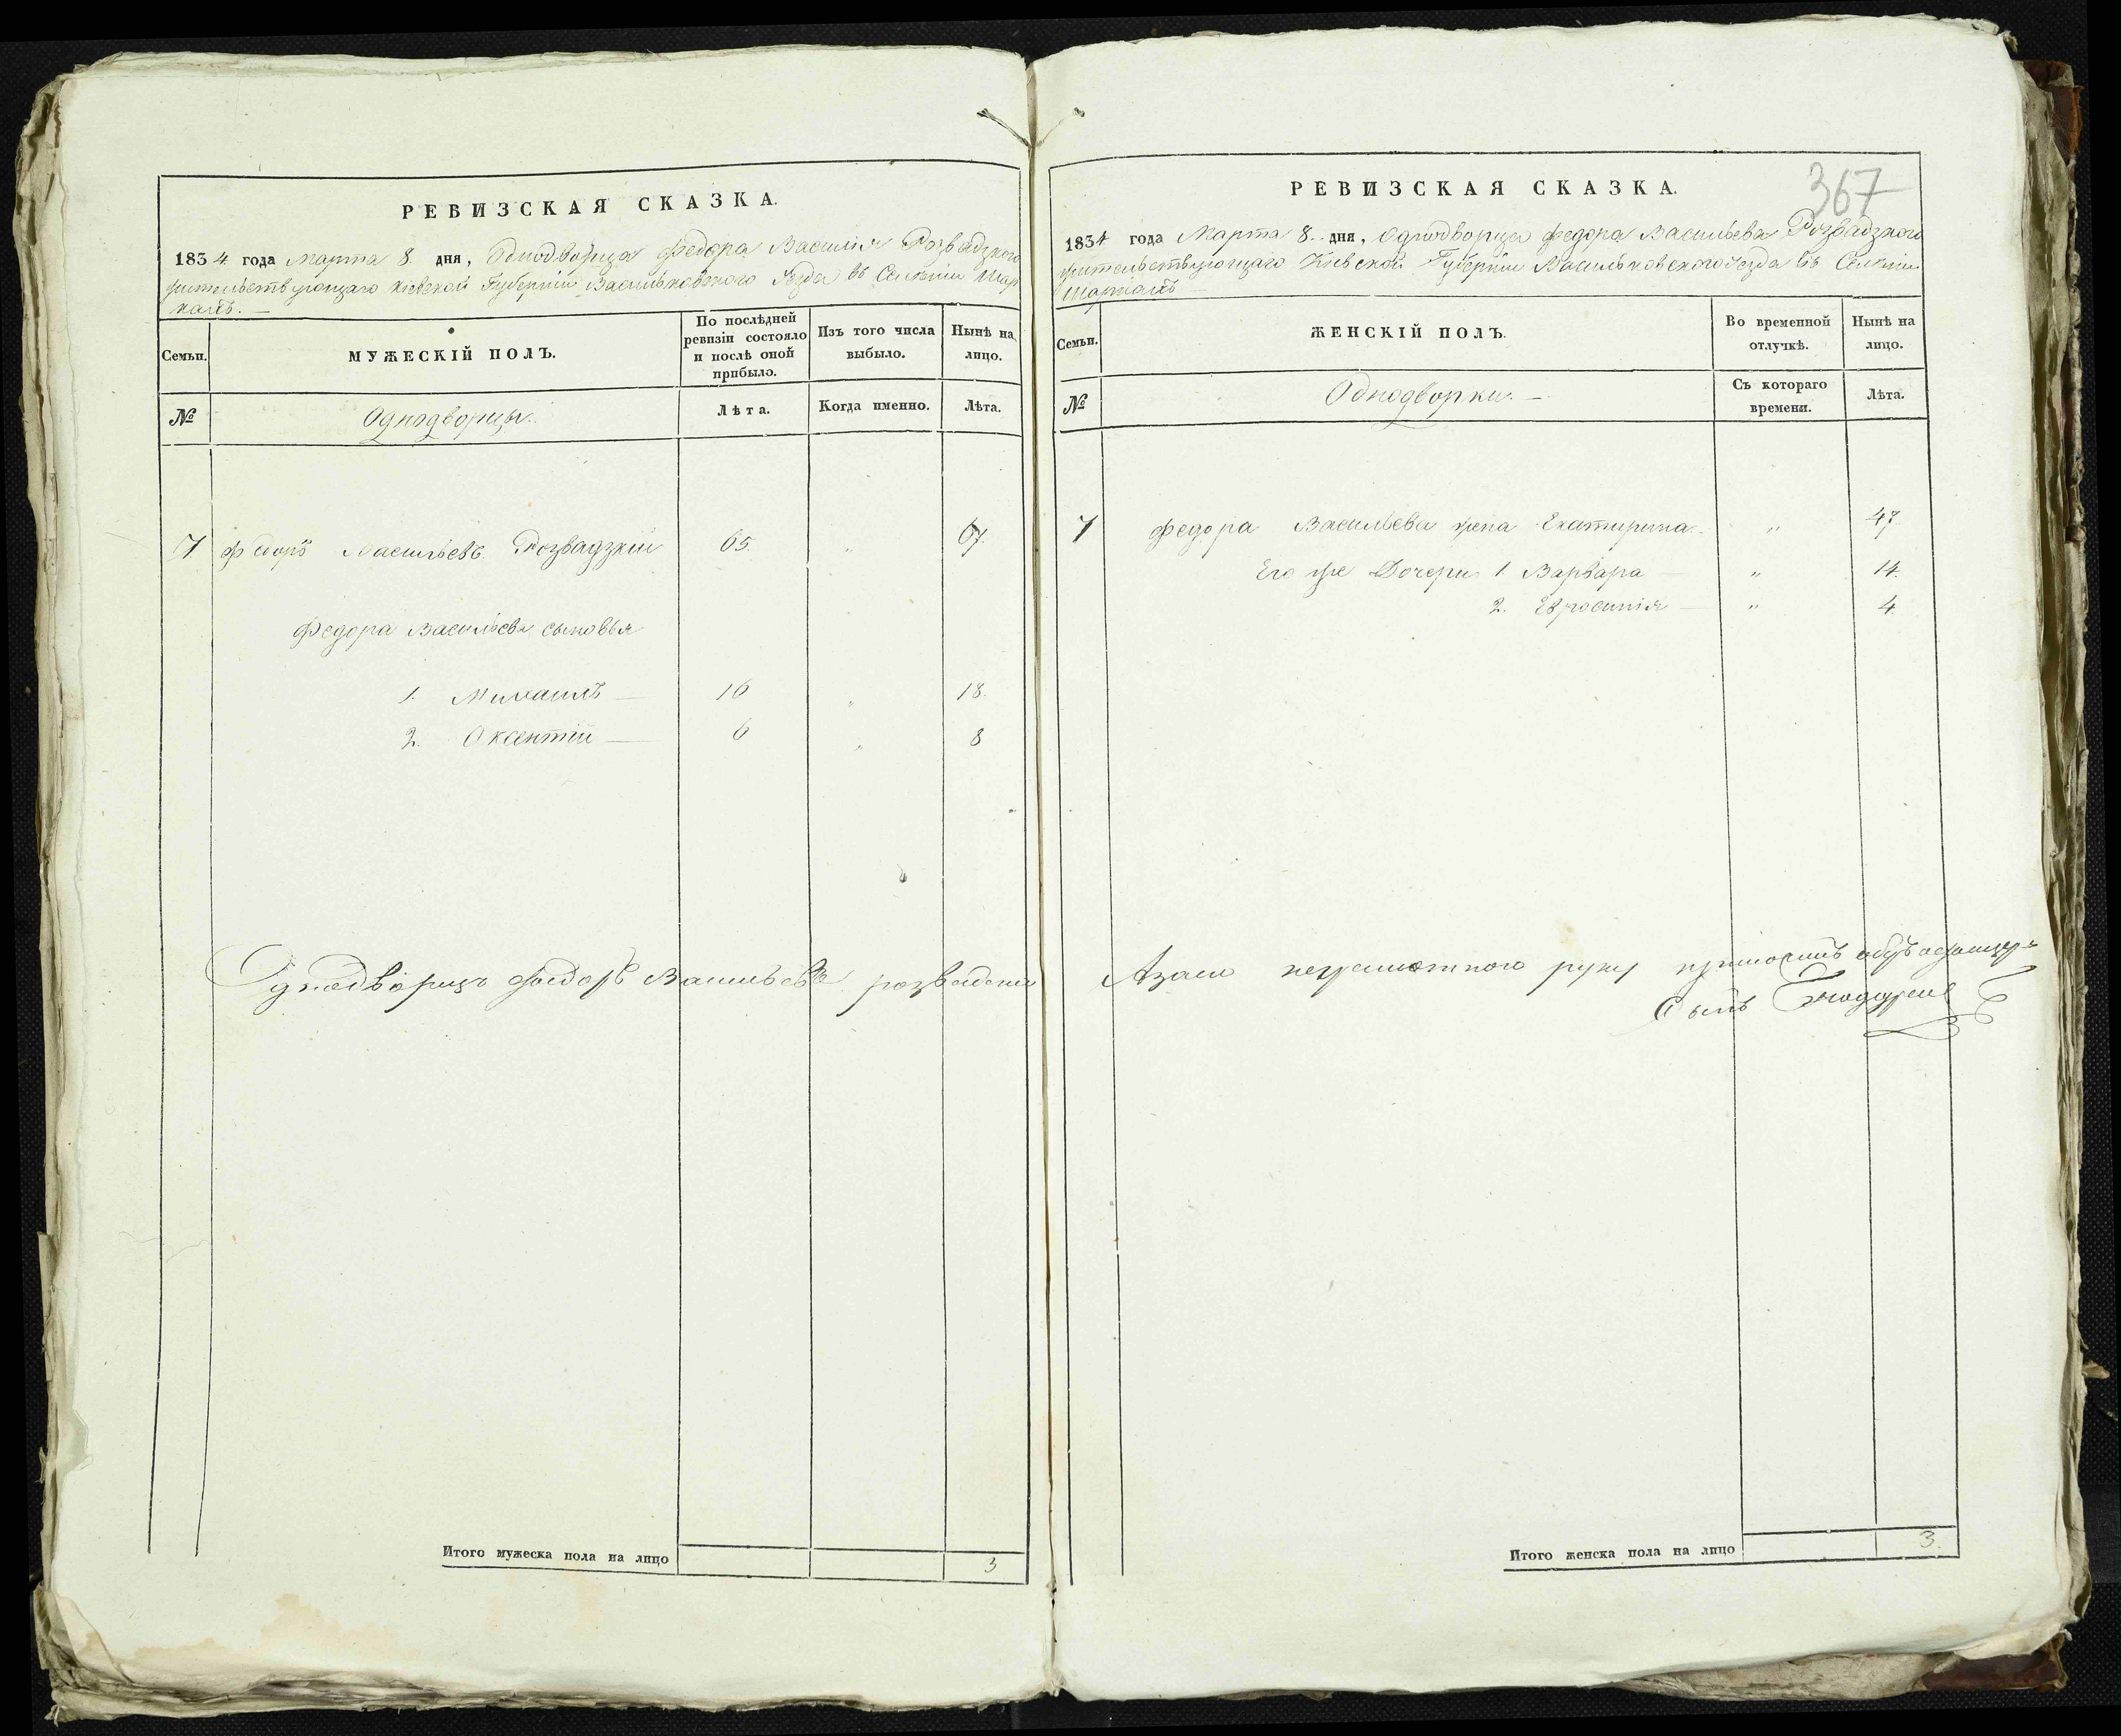 РЕВИЗСКАЯ СКАЗКА.
1834 года Марта 8. дня, Однодворца Федора Василія Розвадзкого
жительствующаго Кіевской Губерніи Васильковского Уезда въ Селеніи Шар
кахъ. —
Семьи.
МУЖЕСКІЙ ПОЛЪ.
По послѣдней ревизіи состояло и послѣ оной прибыло.
Изъ того числа выбыло.
Нынѣ на лицо.
№
Однодворцы.
Лѣта.
Когда именно.
Лѣта.
7. Федоръ Васильевъ Розвадзкій 65. " 67.
Федора Васильева сыновья
1. Михаилъ — 16 " 18.
2. Оксентій — 6 " 8
Однодворецъ Федоръ Васильевъ
Итого мужеска пола на лицо 3
367
РЕВИЗСКАЯ СКАЗКА.
1834 года Марта 8. дня, Однодворца Федора Васильева Розвадзкого
жительствующаго Кіевской Губерніи Васильковского Уезда въ Селеніи
Шаркахъ —
Семьи.
ЖЕНСКІЙ ПОЛЪ.
Во временной отлучкѣ.
Нынѣ на лицо.
№
Однодворки. —
Съ котораго времени.
Лѣта.
7 Федора Васильева жена Екатирина. " 47.
Его же Дочери 1. Варвара — " 14.
2. Ефросинія — " 4
неграмотного руку
Сынъ
Итого женска пола на лицо 3.